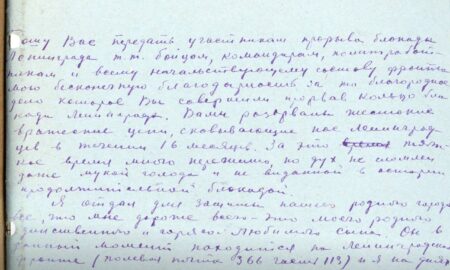 Прошу Вас передать участникам прорыва блокады
Ленинграда т.т. бойцам, командирам, политработ-
никам и всему начальствующему составу фронта
мою бесконечную благодарность за то благородное
дело которое Вы совершили прорвав кольцо бло-
кады Ленинграда. Вами разорваны жестокие
вражеские цепи, сковывающие нас Ленинград
цев в течении 16 месяцев. За это тяж-
кое время много пережито, но дух не сломлен
даже мукой голода и не виданной в истории
продолжительной блокадой.
Я отдал для защиты нашего родного города
все, что мне дороже всего - это моего родного
единственного и горячо любимого сына. Он в
данный момент находится на Ленинградском
фронте (полевая почта 366 часть 113) и я на днях